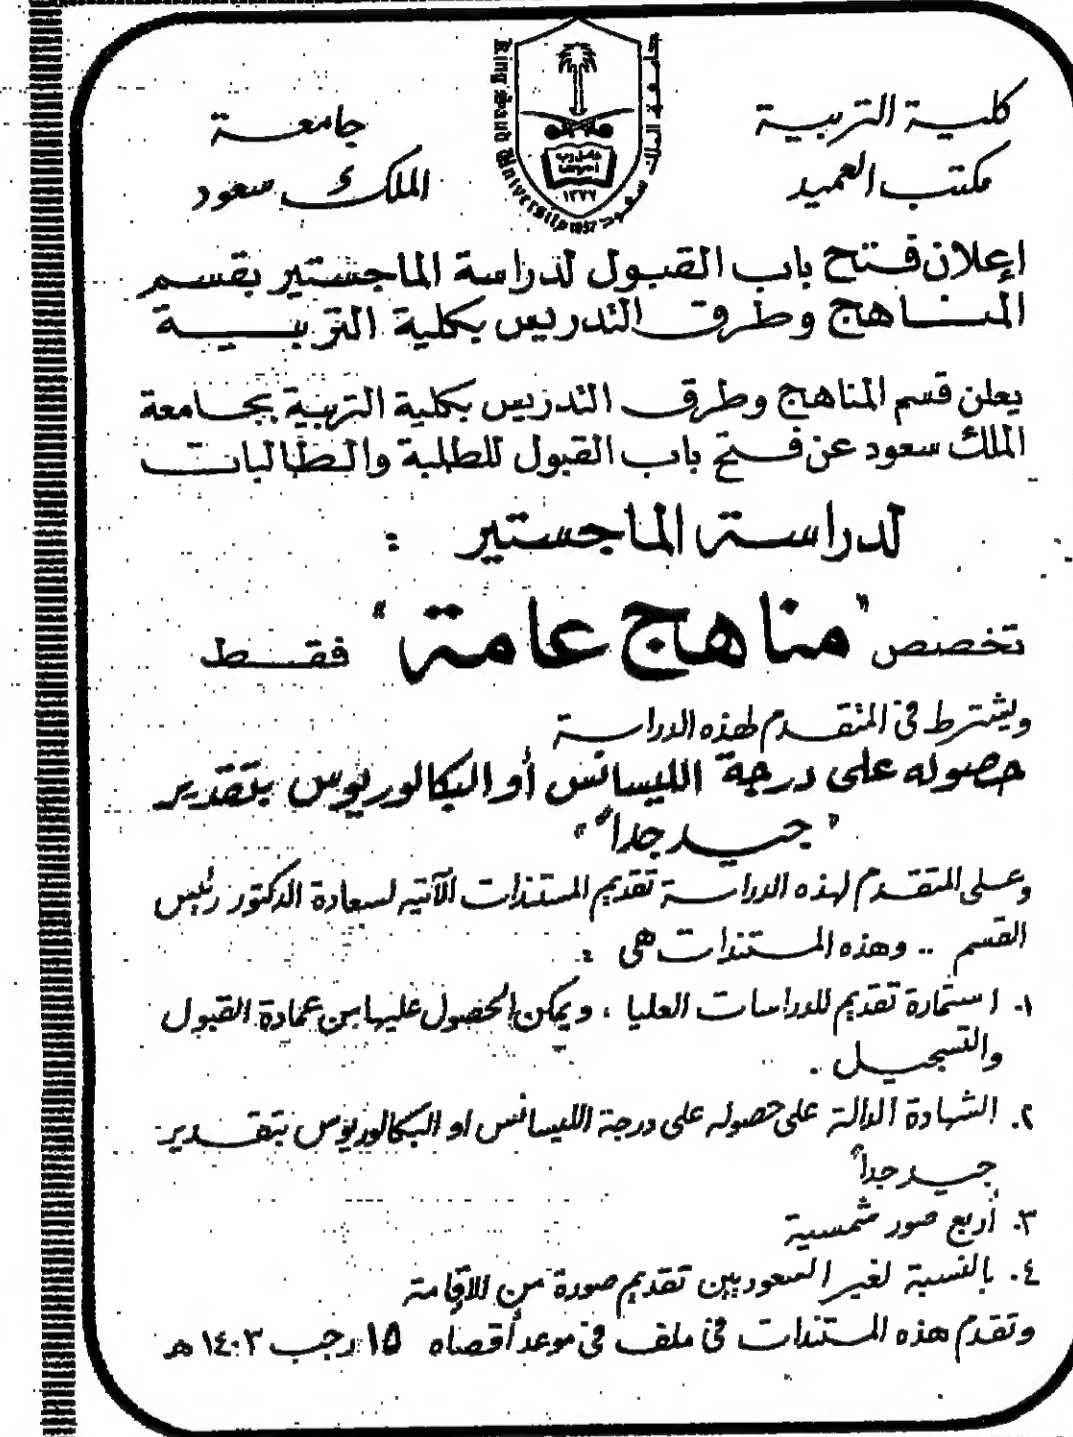 كلية التربية
مكتب العميد
جامعة
الملك سعود
King Saud University 1957
جامعة الملك سعود
١٣٧٧
إعلان فتح باب القبول لدراسة الماجستير بقسم
المناهج وطرق التدريس بكلية التربية
يعلن قسم المناهج وطرق التدريس بكلية التربية بجامعة
الملك سعود عن فتح باب القبول للطلبة والطالبات
لدراسة الماجستير :
تخصص "مناهج عامة" فقط
ويشترط في المتقدم لهذه الدراسة
حصوله على درجة الليسانس أو البكالوريوس بتقدير
"جيد جداً"
وعلى المتقدم لهذه الدراسة تقديم المستندات الآتيه لسعادة الدكتور رئيس
القسم .. وهذه المستندات هي :
١. استمارة تقديم للدراسات العليا ، ويمكن الحصول عليها من عمادة القبول
والتسجيل .
٢. الشهادة الدالة على حصوله على درجة الليسانس او البكالوريوس بتقدير
جيد جداً
٣. أربع صور شمسية
٤. بالنسبة لغير السعوديين تقديم صورة من الاقامة
وتقدم هذه المستندات في ملف في موعد أقصاه ١٥ رجب ١٤٠٣ هـ